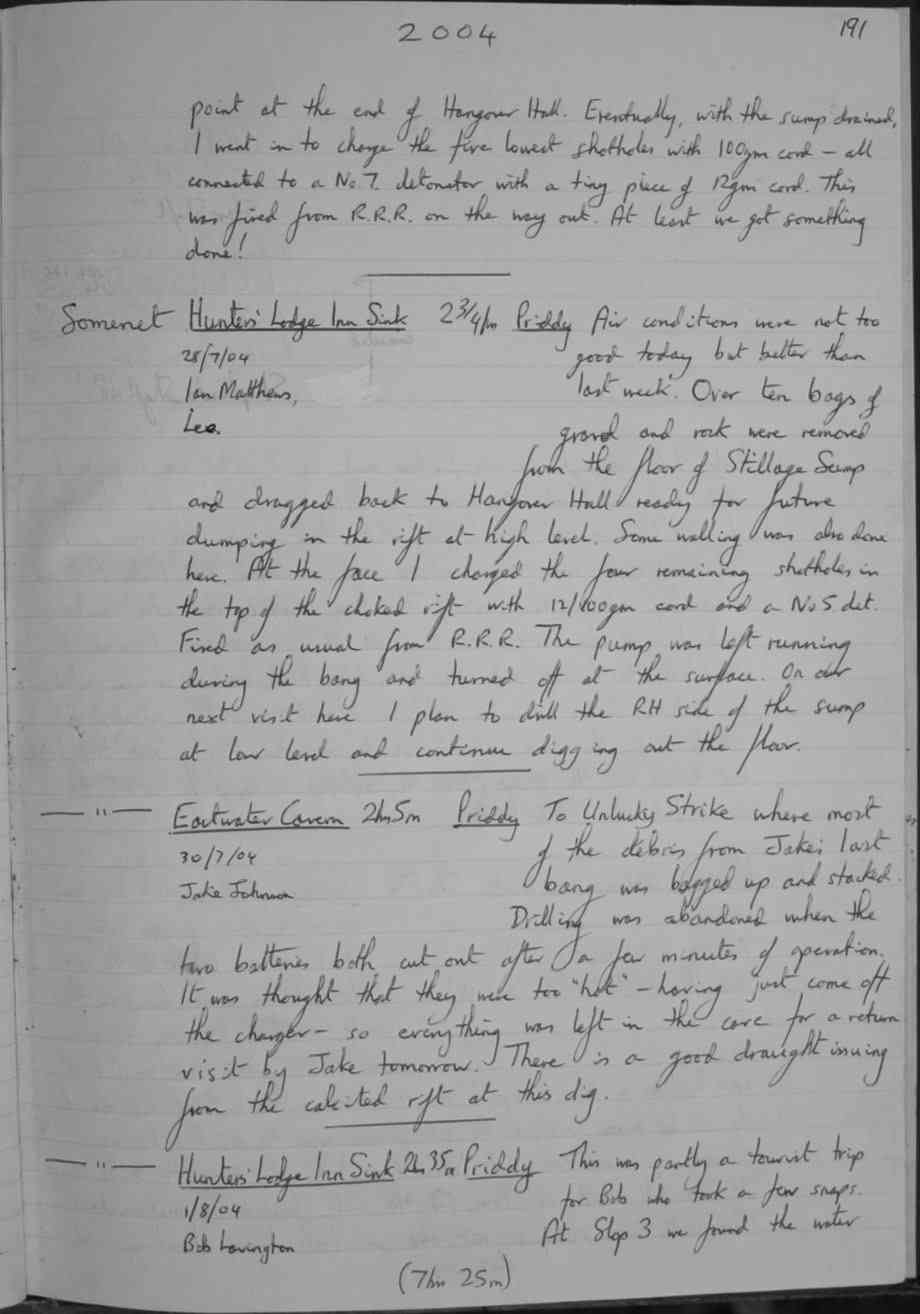 2004
191
point at the end of Hangover Hall. Eventually, with the sump drained,
I went in to charge the five lowest shotholes with 100gm cord - all
connected to a No.7. detonator with a tiny piece of 12gm cord. This
was fired from R.R.R. on the way out. At least we got something
done!
Somerset Hunters' Lodge Inn Sink 2 3/4hr Priddy Air conditions were not too
28/7/04 good today but better than
Ian Matthews, last week. Over ten bags of
Lee. gravel and rock were removed
from the floor of Stillage Sump
and dragged back to Hangover Hall ready for future
dumping in the rift at high level. Some walling was also done
here. At the face I charged the four remaining shotholes in
the top of the choked rift with 12/100gm cord and a No 5 det.
Fired as usual from R.R.R. The pump was left running
during the bang and turned off at the surface. On our
next visit here I plan to drill the RH side of the sump
at low level and continue digging out the floor.
— " — Eastwater Cavern 2hr 5m Priddy To Unlucky Strike where most
30/7/04 of the debris from Jake's last
Jake Johnson bang was bagged up and stacked.
Drilling was abandoned when the
two batteries both cut out after a few minutes of operation.
It was thought that they were too "hot" - having just come off
the charger - so everything was left in the cave for a return
visit by Jake tomorrow. There is a good draught issuing
from the calcited rift at this dig.
— " — Hunters' Lodge Inn Sink 2hr 35m Priddy This was partly a tourist trip
1/8/04 for Bob who took a few snaps.
Bob Lavington At Slop 3 we found the water
(7hr 25m)